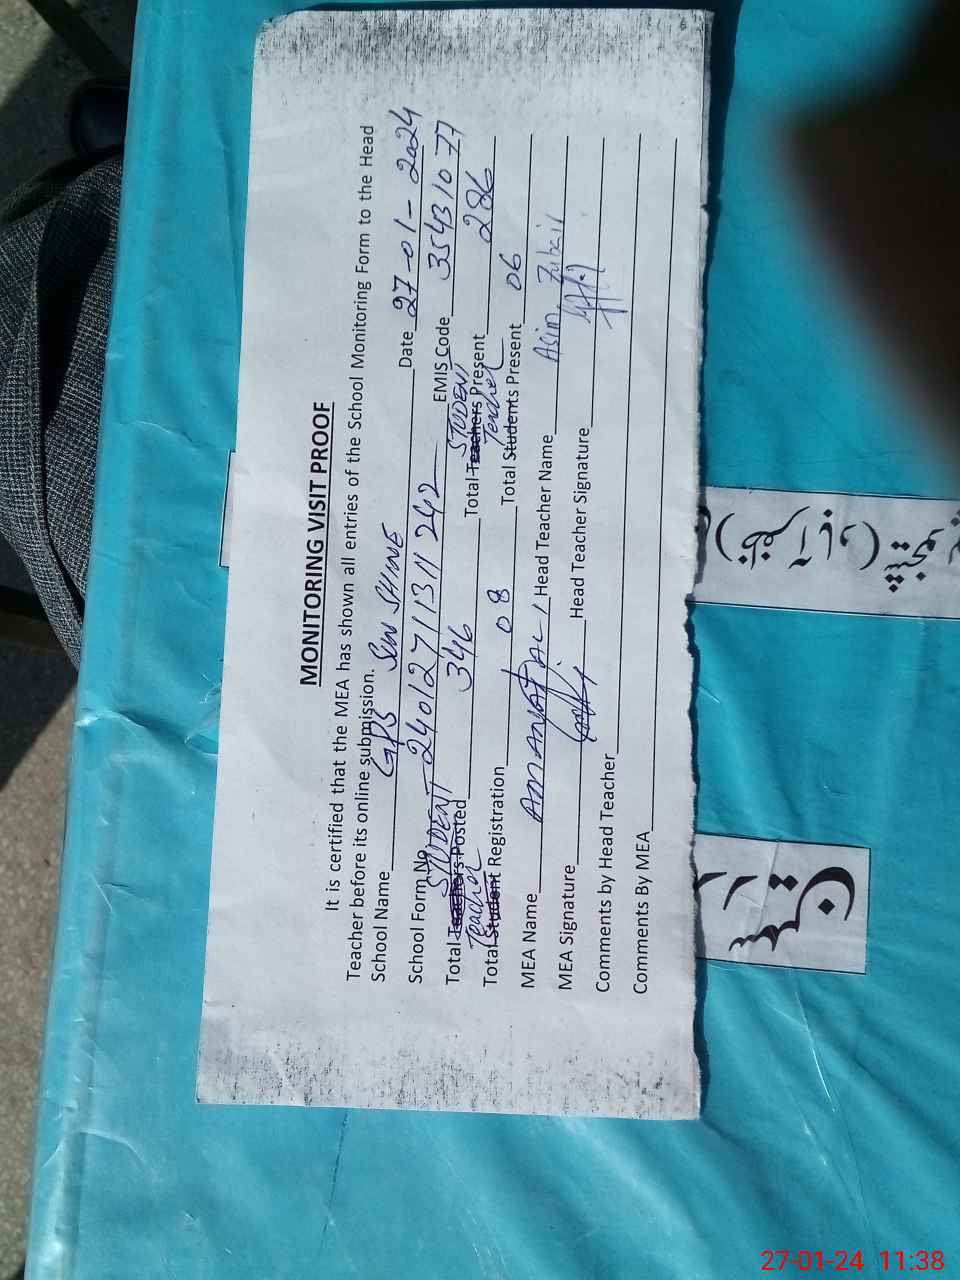 MONITORING VISIT PROOF
It is certified that the MEA has shown all entries of the School Monitoring Form to the Head
Teacher before its online submission.
School Name GPS Sun SHINE Date 27-01-2024
School Form No 240127131124 2 EMIS Code 35431077
Total Teachers STUDENT Posted 346 Total Teachers STUDENT Present 286
Total Student Teacher Registration 08 Total Students Teacher Present 06
MEA Name Head Teacher Name Asim Zubair
MEA Signature Head Teacher Signature
Comments by Head Teacher
Comments By MEA
27-01-24 11:38